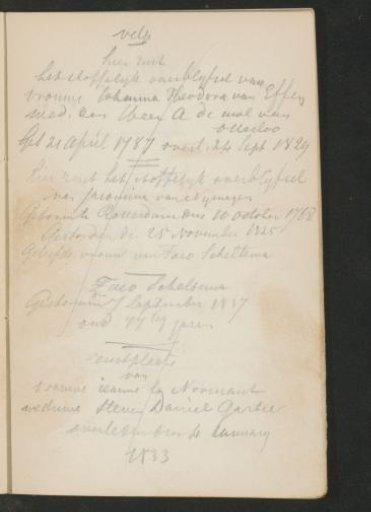 velp
hier rust
het stoffelyk overblyfsel van
vrouwe Johanna Theodora van Effen
wed. den Heer A de mol van
otterloo
Geb 21 april 1787 overl. 24 Sept 1829
Hier rust het stoffelyk overblyfsel
van
Geboren te Rotterdam den 10 october 1768
Gestorven de 25 November 1825
Geliefde vrouw van Taco Scheltema
Taco Scheltema
Gestorven 7 September 1837
oud 77 jaren
rustplaats
van
vrouwe Jeanne le Normant
weduwe Steven Daniel Garber
overleden den january
1833